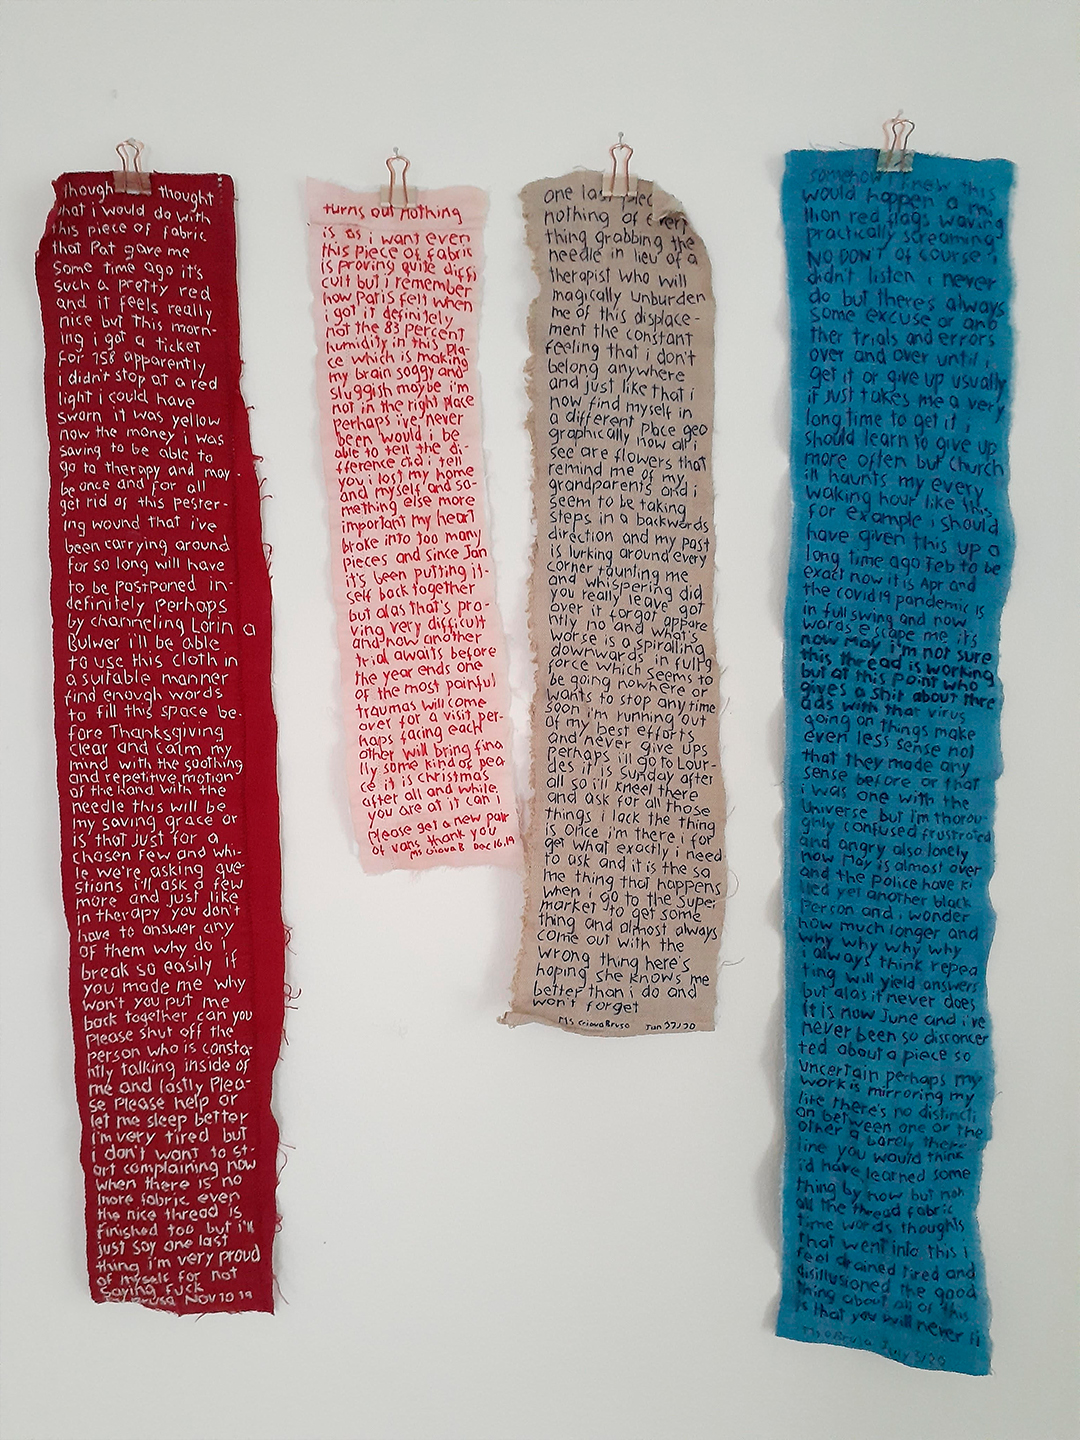 though thought
what i would do with
this piece of fabric
that Pat gave me
some time ago it's
such a pretty red
and it feels really
nice but this morn-
ing i got a ticket
for 158 apparently
i didn't stop at a red
light i could have
sworn it was yellow
now the money i was
saving to be able to
go to therapy and may-
be once and for all
get rid of this pester-
ing wound that i've
been carrying around
for so long will have
to be postponed in-
definitely perhaps
by channeling Lorin a
Bulwer i'll be able
to use this cloth in
a suitable manner
find enough words
to fill this space be-
fore Thanksgiving
clear and calm my
mind with the soothing
and repetitive motion
of the hand with the
needle this will be
my saving grace or
is that just for a
chosen few and whi-
le we're asking que-
stions i'll ask a few
more and just like
in therapy you don't
have to answer any
of them why do i
break so easily if
you made me why
won't you put me
back together can you
please shut off the
person who is consta-
ntly talking inside of
me and lastly Plea-
se Please help or
let me sleep better
i'm very tired but
i don't want to st-
art complaining now
when there is no
more fabric even
the nice thread is
finished too but i'll
just say one last
thing i'm very proud
of myself for not
saying fuck
Brusa Nov 10 19
turns out nothing
is as i want even
this piece of fabric
is proving quite diffi
cult but i remember
how Paris felt when
i got it definitely
not the 83 percent
humidity in this pla-
ce which is making
my brain soggy and
sluggish maybe i'm
not in the right place
perhaps i've never
been would i be
able to tell the di-
fference did i tell
you i lost my home
and myself and so-
mething else more
important my heart
broke into too many
pieces and since Jan
it's been putting it-
self back together
but alas that's pro-
ving very difficult
and now another
trial awaits before
the year ends one
of the most painful
traumas will come
over for a visit per-
haps facing each
other will bring fina
lly some kind of pea
ce it is christmas
after all and while
you are at it can i
please get a new pair
of vans thank you
Ms GiovaB Dec 16,19
one last piec
nothing of every
thing grabbing the
needle in lieu of a
therapist who will
magically unburden
me of this displace-
ment the constant
feeling that i don't
belong anywhere
and just like that i
now find myself in
a different place geo
graphically now all i
see are flowers that
remind me of my
grandparents and i
seem to be taking
steps in a backwards
direction and my past
is lurking around every
corner taunting me
and whispering did
you really leave got
over it forgot appare
ntly no and what's
worse is a spiralling
downwards in full g
force which seems to
be going nowhere or
wants to stop any time
soon i'm running out
of my best efforts
and never give ups
perhaps i'll go to Lour-
des it is sunday after
all so i'll kneel there
and ask for all those
things i lack the thing
is once i'm there i for
get what exactly i need
to ask and it is the sa
me thing that happens
when i go to the super
market to get some
thing and almost always
come out with the
wrong thing here's
hoping she knows me
better than i do and
won't forget
Ms GiovaBrusa Jan 27/20
somehow i knew this
would happen a mi
llion red flags waving
practically screaming
NO DON'T of course i
didn't listen i never
do but there's always
some excuse or ano
ther trials and errors
over and over until i
get it or give up usually
it just takes me a very
long time to get it i
should learn to give up
more often but church
ill haunts my every
waking hour like this
for example i should
have given this up a
long time ago Feb to be
exact now it is Apr and
the covid 19 pandemic is
in full swing and now
words escape me its
now May i'm not sure
this thread is working
but at this point who
gives a shit about thre
ads with that virus
going on things make
even less sense not
that they made any
sense before or that
i was one with the
universe but i'm thorou-
ghly confused frustrated
and angry also lonely
now May is almost over
and the police have ki
lled yet another black
person and i wonder
how much longer and
why why why why
i always think repea
ting will yield answers
but alas it never does
It is now June and i've
never been so disconcer
ted about a piece so
uncertain perhaps my
work is mirroring my
life there's no distincti
on between one or the
other a barely there
line you would think
i'd have learned some
thing by now but noh
all the thread fabric
time words thoughts
that went into this i
feel drained tired and
disillusioned the good
thing about all of this
is that you will never fi
Brusa July 3/20